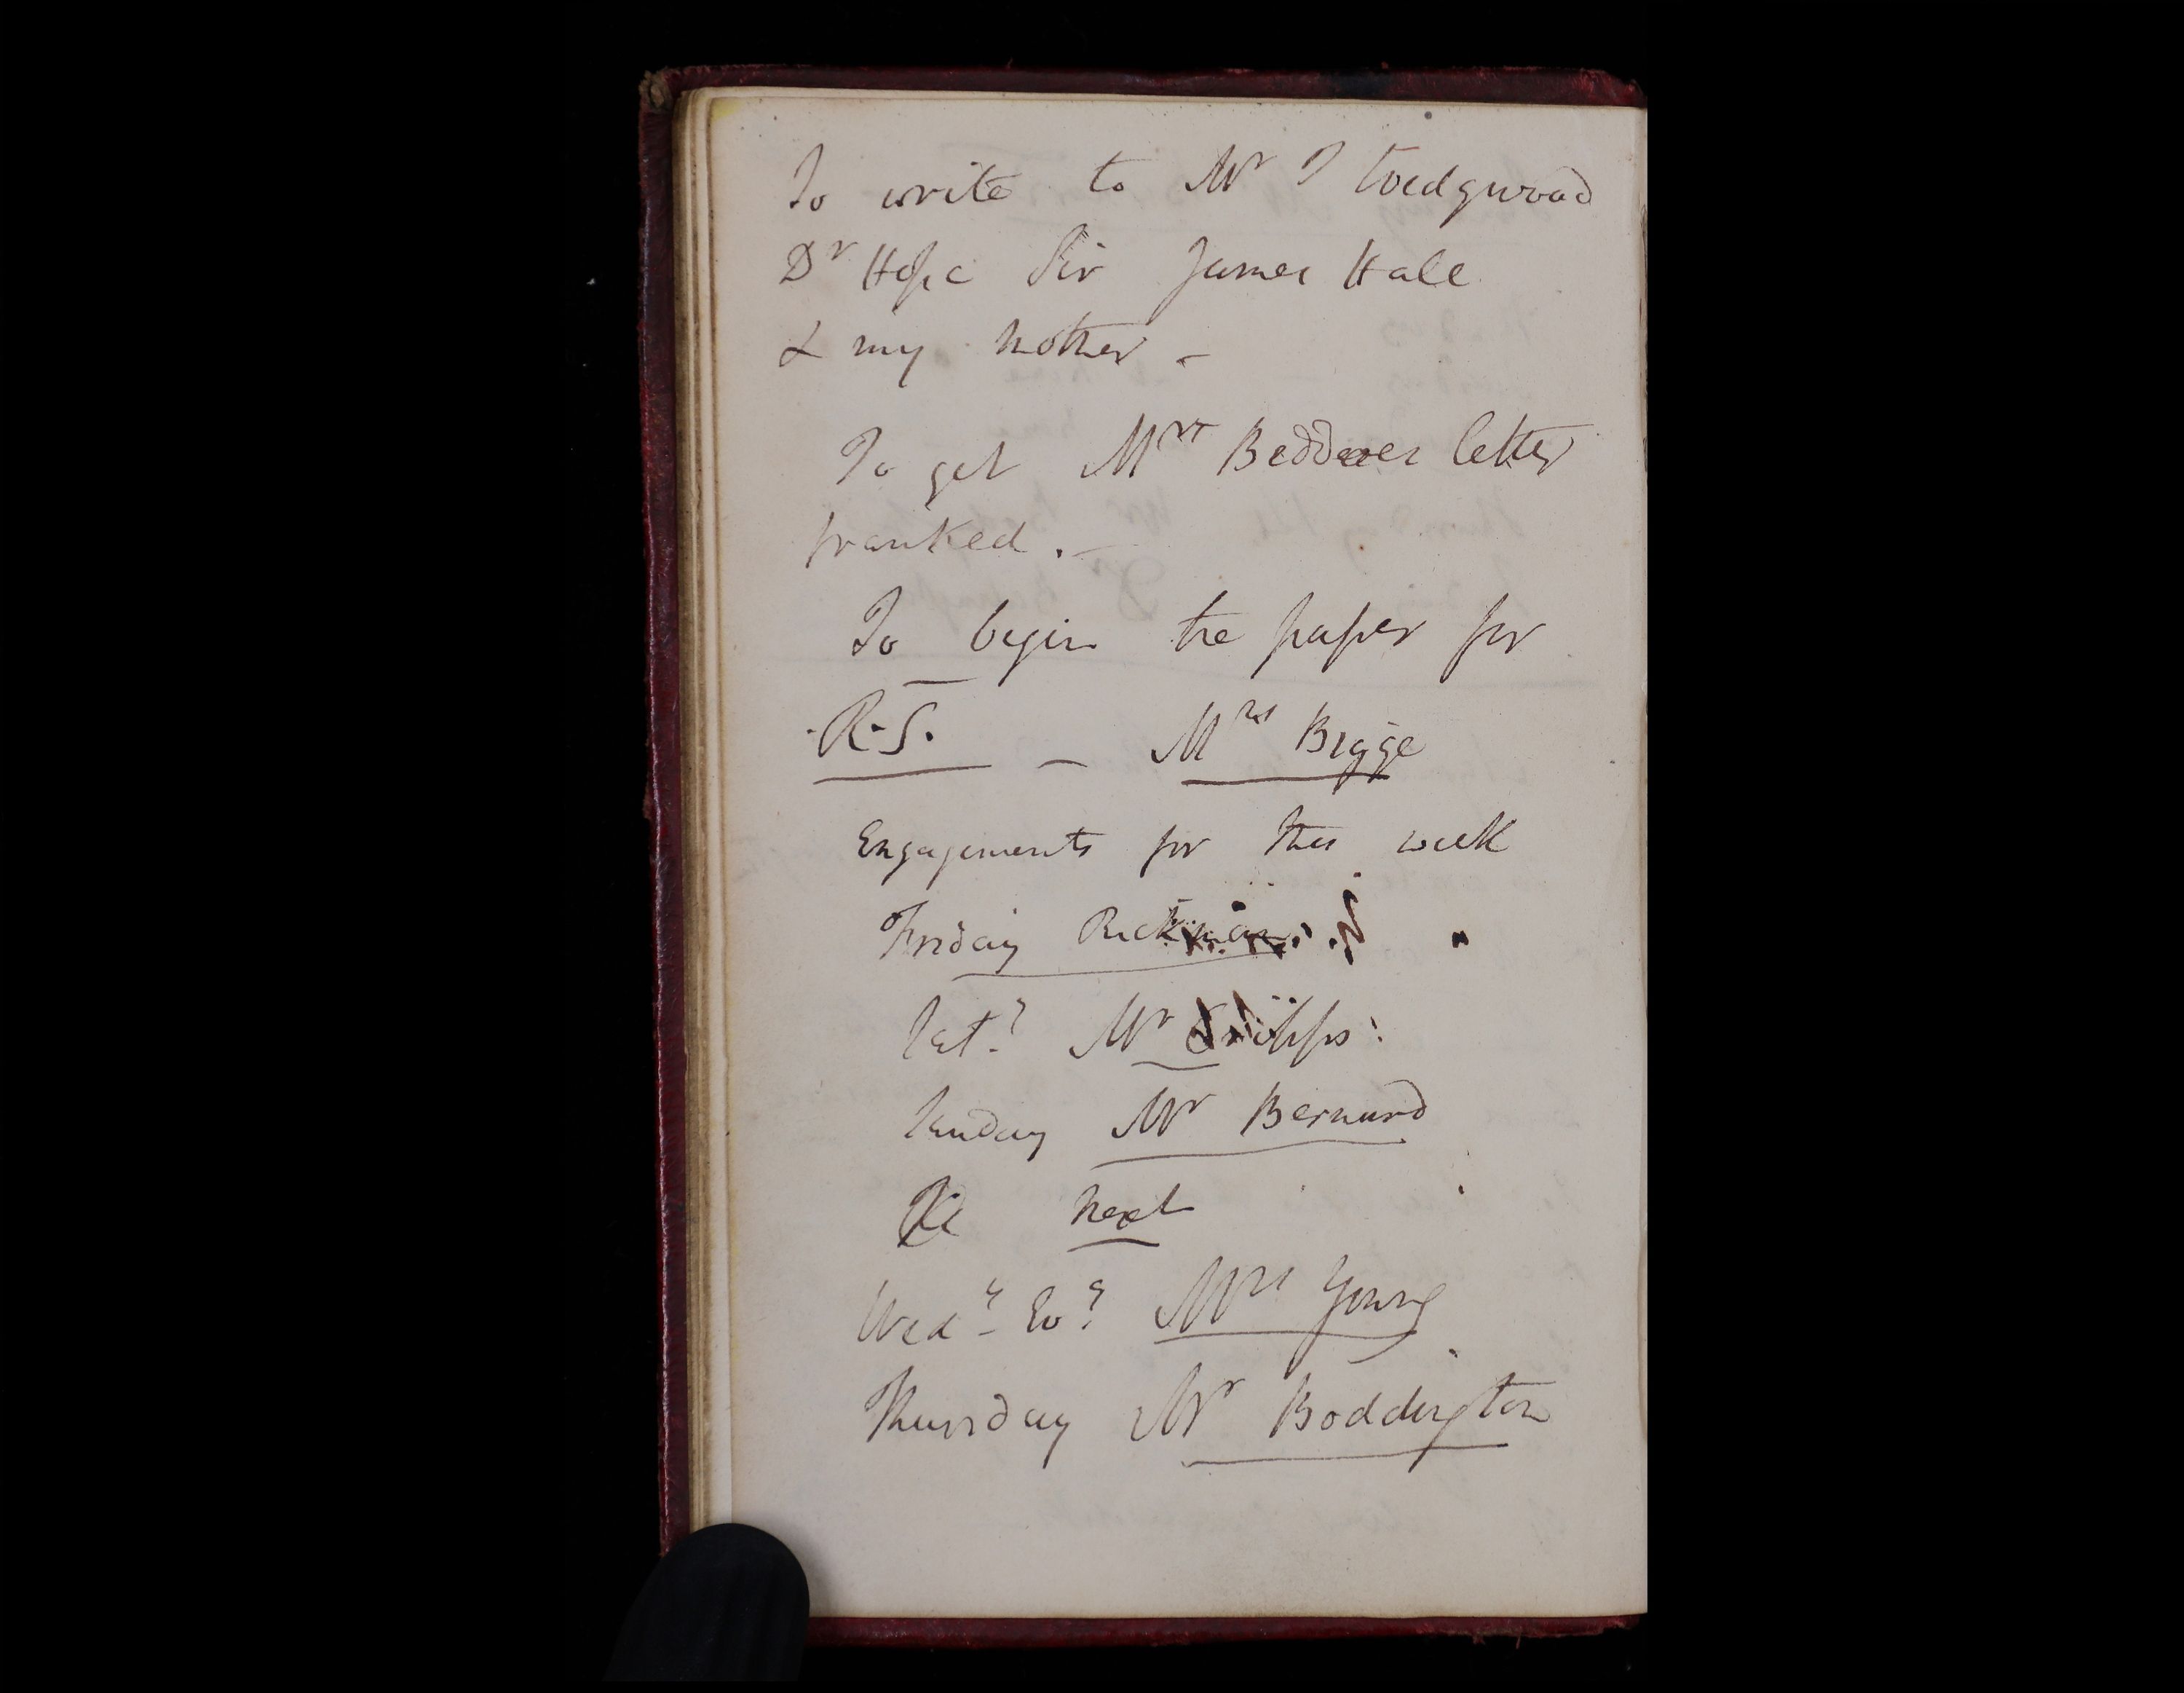 To write to Mr T Wedgwood
Dr Hope Sir James Hall
& my mother -
To get Mrs Beddoes letter
franked . -
To begin the paper for
R.S. - Mrs Bigge
Engagements for this week
Friday Rickman
Sat.y Mr
Sunday Mr Bernard
next
Wed.y Ev.g Mrs Young
Thursday Mr Boddington